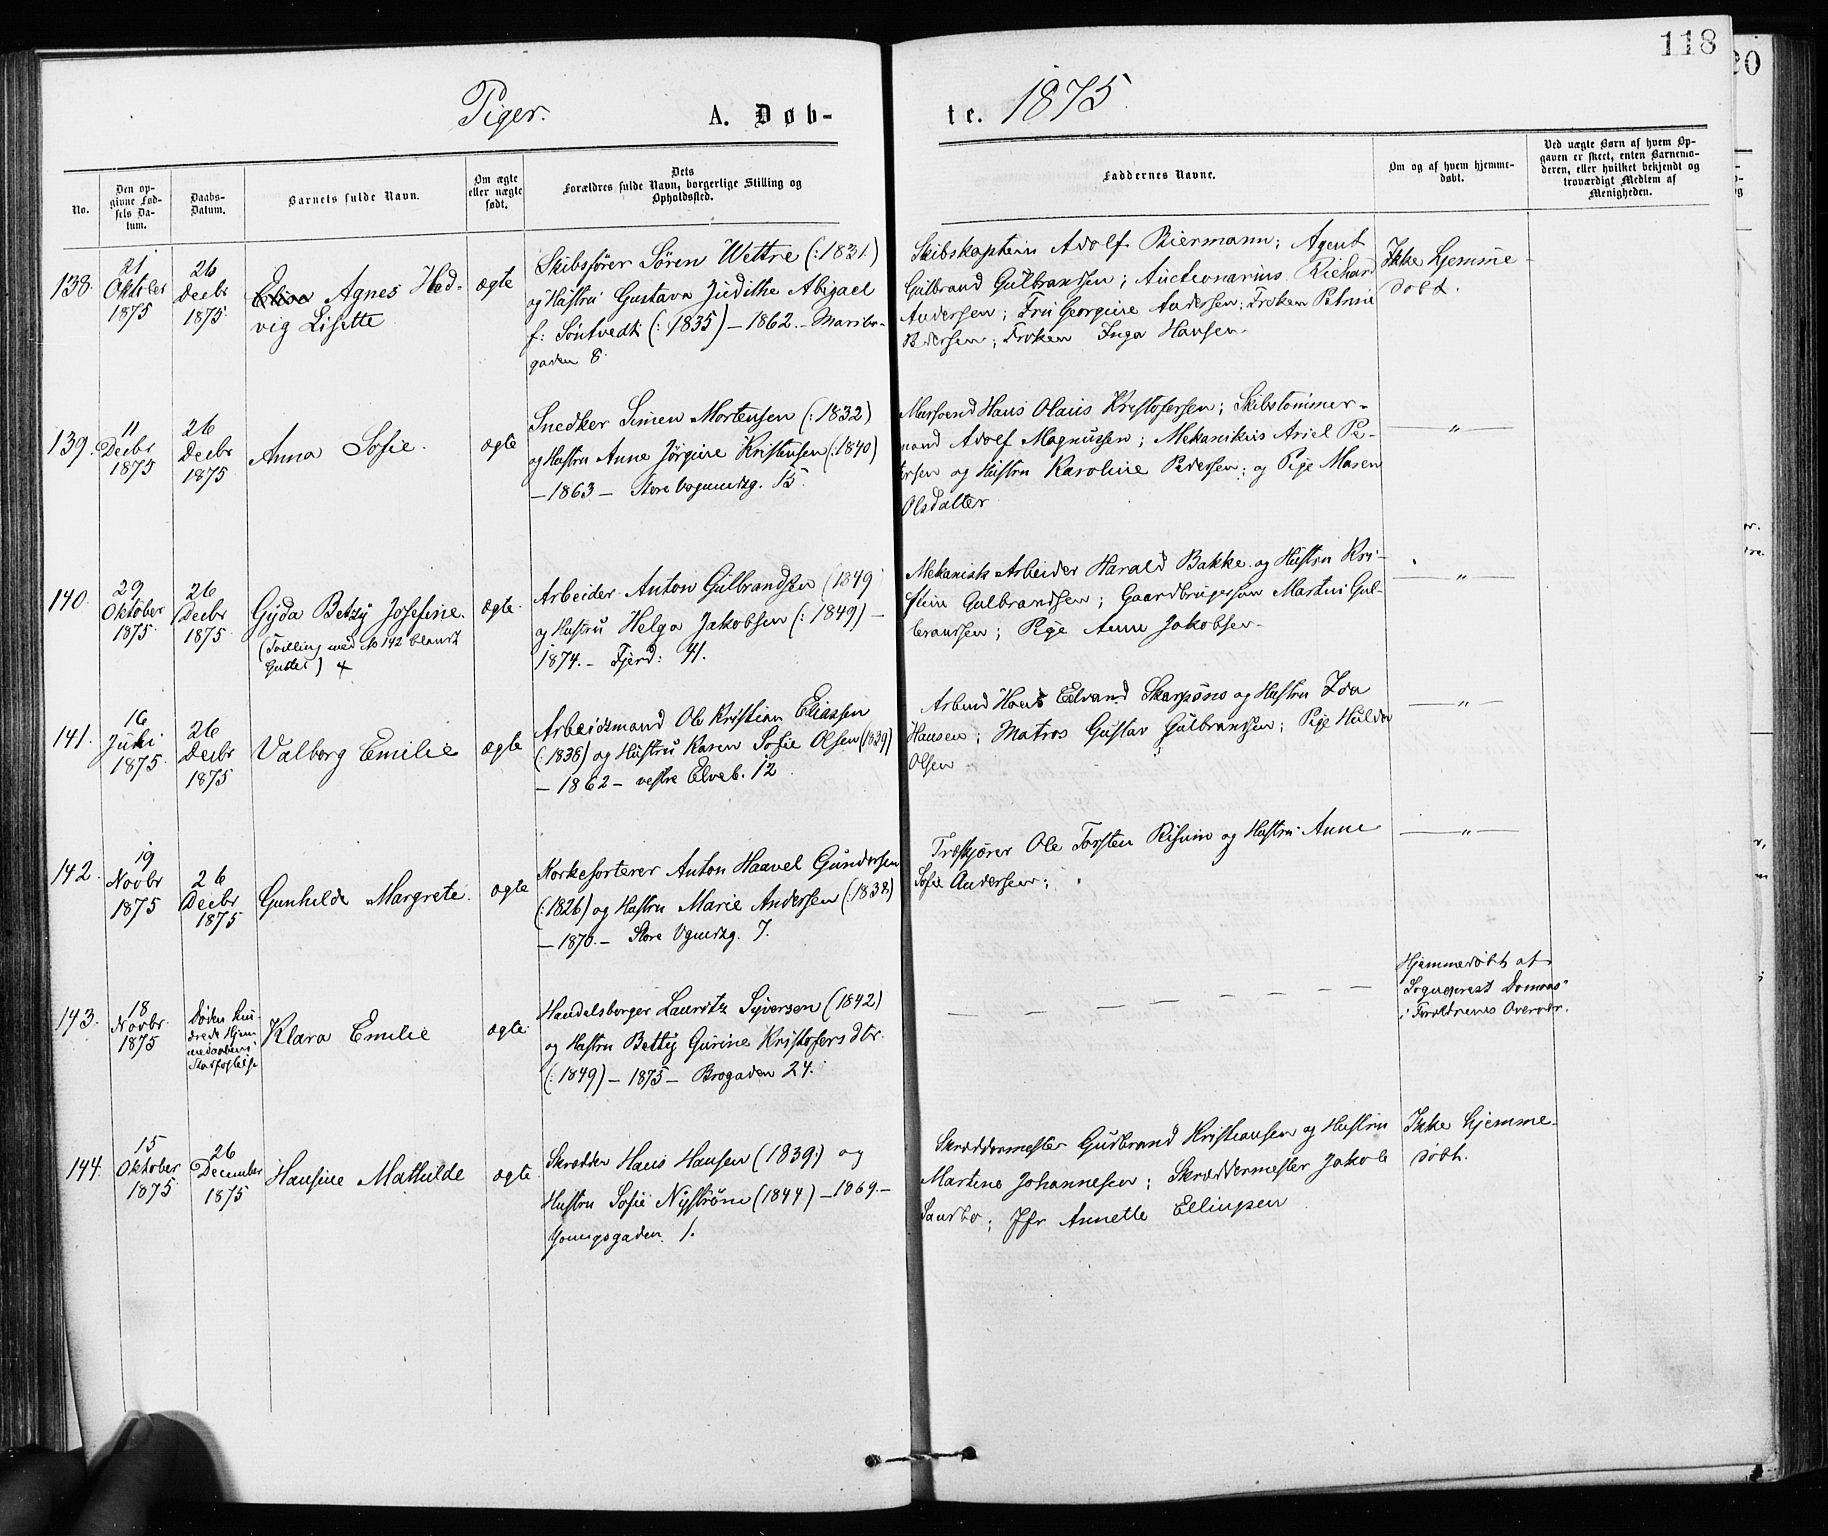 118
20
Piger. A. Døb-
te. 1875.
No.
Den op-
givne Fød-
sels Da-
tum.
Daabs-
Datum.
Barnets fulde Navn.
Om ægte
eller uægte
født.
Dets
Forældres fulde Navn, borgerlige Stilling og
Opholdssted.
Faddernes Navne.
Om og af hvem hjemme-
døbt.
Ved uægte Børn af hvem Op-
gaven er skeet, enten Barnemo-
deren, eller hvilket bekjendt og
troværdigt Medlem af
Menigheden.
138.
21
Oktober
1875
26
Decbr
1875.
Agnes Hed-
vig Lisette
ægte
Skibsfører Sören Wettre (: 1831.)
og Hustru Gustava Judithe Abigael
f: Söntvedt (: 1835) – 1862. – Maribo-
gaden 8.
Skibskaptein Adolf Biermann; Agent
Gulbrand Gulbrandsen; Auctionarius Richard
Andersen; Fru Georgine Andersen; Frøken Petrine
Pedersen; Frøken Inga Hansen.
Ikke hjemme-
døbt.
139.
11
Decbr
1875
26
Decbr
1875.
Anna Sofie.
ægte
Snedker Simen Mortensen (: 1832)
og Hustru Anne Jörgine Kristensen (: 1840)
– 1863 – Store Vognmdsg. 15.
Hans Olaus Kristofersen; Skibstømmer-
mand Adolf Magnussen; Mekanikus Ariel Pe-
tersen og Hustru Karoline Pedersen; og Pige Maren
Olsdatter
— " —
140.
29
Oktober
1875.
26
Decbr
1875
Gyda Betzy Josefine.
(Tvilling med No 142 blandt
Gutter) +
ægte.
Arbeider Anton Gulbrandsen (1849
og Hustru Helga Jakobsen (: 1849) –
1874. – Fjerd: 41.
Mekanisk Arbeider Harald Bakke og Hustru Kri-
stine Gulbrandsen; Gaardbrugersøn Martin Gul-
brandsen; Pige Anne Jakobsen.
— " —
141.
16
Juli
1875.
26
Decbr
1875
Valborg Emilie
ægte
Arbeidsmand Ole Kristian Eliassen
(: 1838) og Hustru Karen Sofie Olsen (1839)
– 1862 – vestre Elveb. 12
Arbmd Hans Edvard Skarpsno og Hustru Ida
Hansen; Matros Gustav Gulbrandsen; Pige Hulda
Olsen
— " —
142.
19
Novbr
1875
26
Decbr
1875
Gunhilde Margrete.
ægte
Korkesorterer Anton Haavel Gundersen
(: 1826) og Hustru Marie Andersen (: 1838)
– 1870. – Store Vgmdsg. 7.
Træskjærer Ole Torsten Risum og Hustru Anne
Sofie Andersen;
— " —
143.
18
Novbr.
1875
Døden hin-
drede Hjem-
medaabens
Stadfæstelse
Klara Emilie
ægte.
Handelsborger Lauritz Syversen (1842)
og Hustru Betty Gurine Kristofersdtr.
(: 1849) – 1875 – Brogaden 24.
— — — — — — — — —
Hjemmedøbt af
Sogneprest Domaas
i Forældrenes Overvær.
144.
15
Oktober
1875
26
December
1875
Hansine Mathilde
ægte
Skrædder Hans Hansen (1839.) og
Hustru Sofie Nyström (1844) – 1869. –
Youngsgaden 1.
Skræddermester Gudbrand Kristiansen og Hustru
Martine Johannesen; Skræddermester Jakob
Saurbo; Jfr Annette Ellingsen
Ikke hjemme-
døbt.